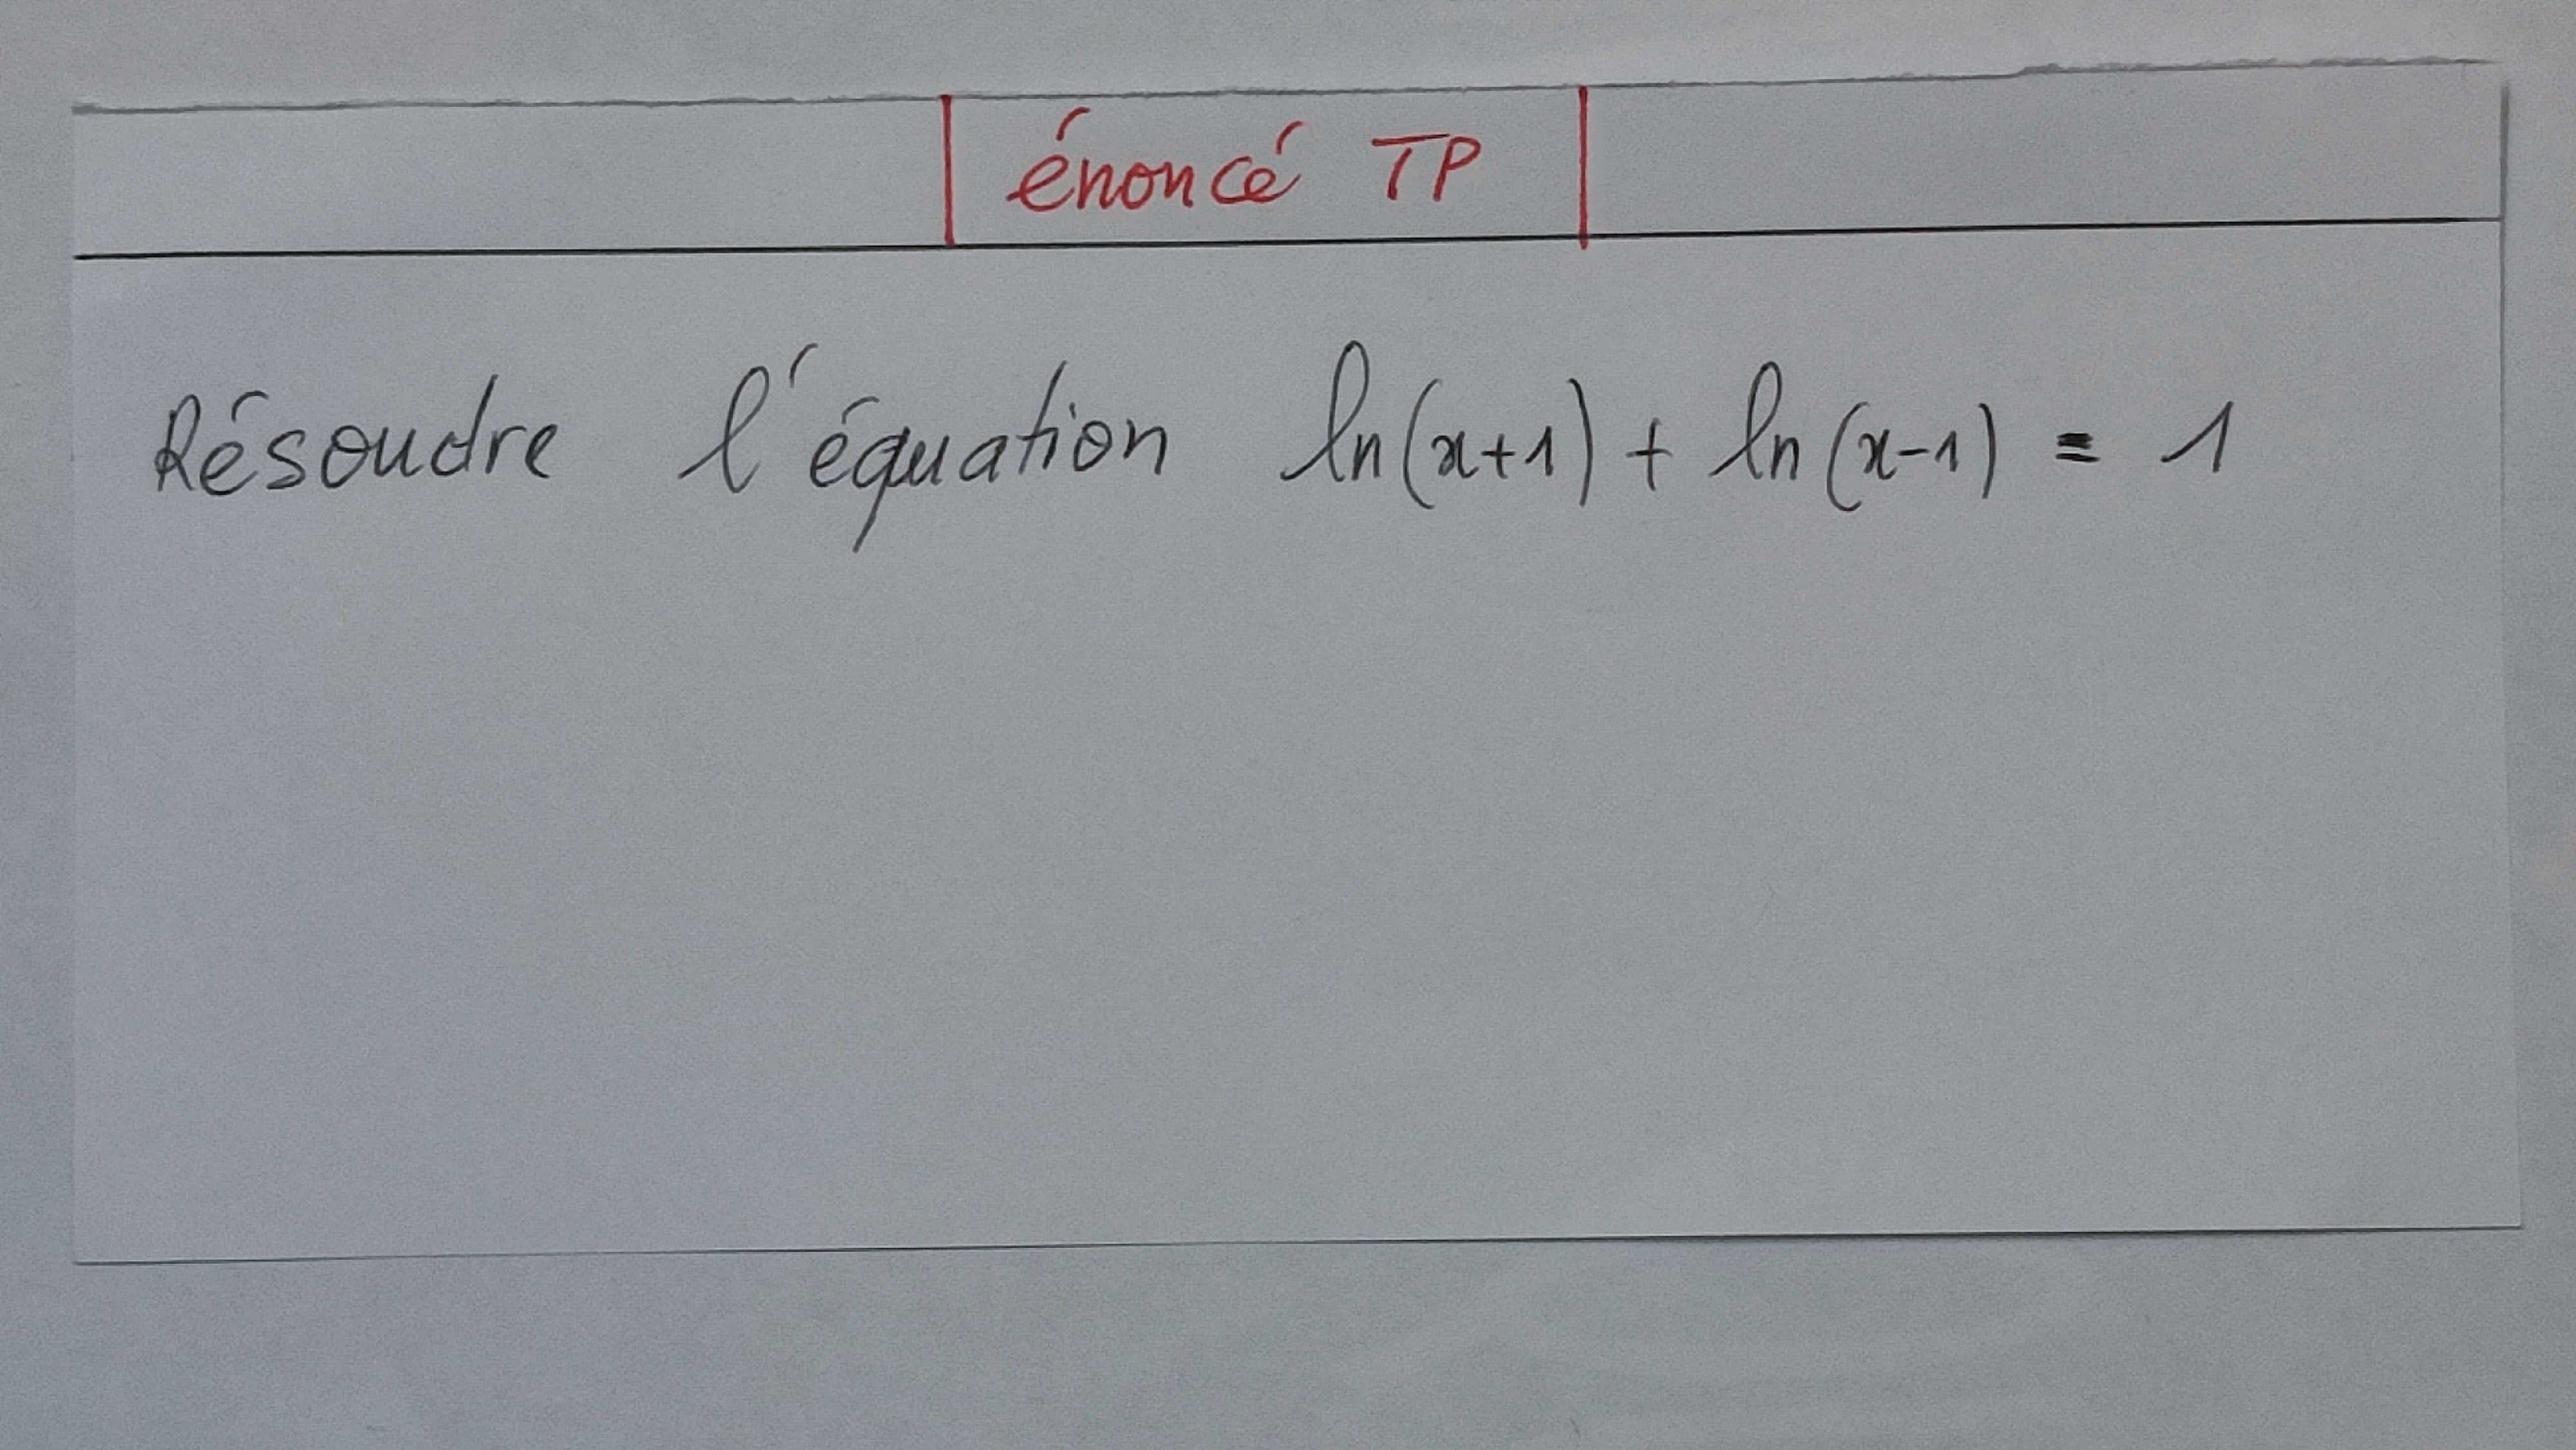 énoncé TP
Résoudre l'équation ln(x+1) + ln(x-1) = 1